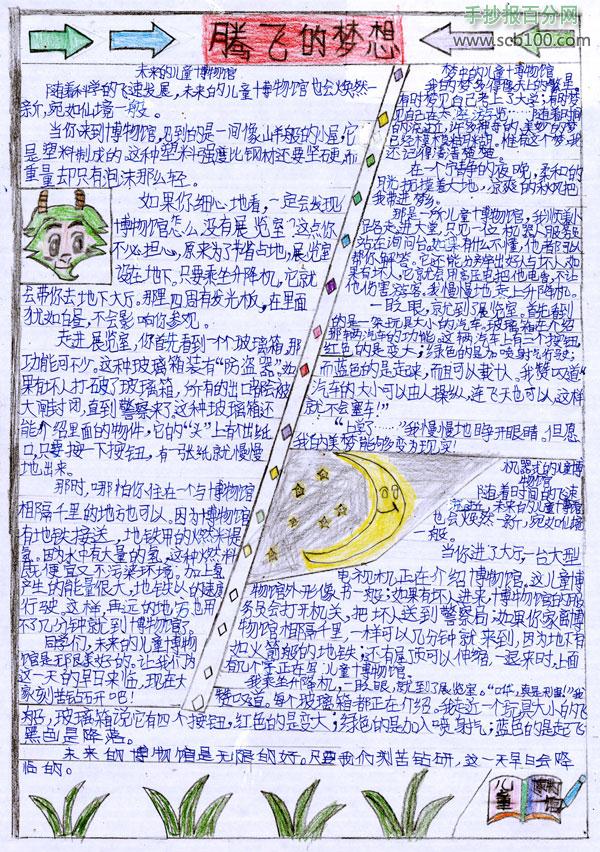 手抄报百分网
www.scb100.com
腾飞的梦想
未来的儿童博物馆
随着科学的飞速发展，未来的儿童博物馆也会焕然一
新，宛如仙境一般。
当你来到博物馆，见到的是一间像山羊般的小屋，它
是塑料制成的。这种塑料强度比钢材还要坚硬，而
重量却只有泡沫那么轻。
如果你细心地看，一定会发现
博物馆怎么没有展览室？这点你
不必担心，原来为了节省占地，展览室
设在地下。只要乘坐升降机，它就
会带你去地下大厅。那里四周有发光板，在里面
犹如白昼，不会影响你参观。
走进展览室，你首先看到一个玻璃箱，那
功能可不少。这种玻璃箱装有“防盗器”。如
果有坏人打破了玻璃箱，所有的出口都会被
大闸封闭，直到警察来了。这种玻璃箱还
能介绍里面的物件，它的“头”上有个出纸
口，只要按一下按钮，有一张纸就慢慢
地出来。
那时，哪怕你住在一个与博物馆
相隔千里的地方也可以。因为博物馆
有地铁接送，地铁用的燃料是
氢。因为水中有大量的氢，这种燃料
既便宜又不污染环境。加上氢
产生的能量很大，地铁以的速度
行驶。这样，再远的地方也用
不了几分钟就到博物馆了。
同学们，未来的儿童博物
馆是无限美好的。让我们为
这一天的早日来临，现在大
家刻苦钻研吧！
梦中的儿童博物馆
我的梦多得像天上的繁星，
有时梦见自己考上了大学；有时梦
见自己在太空
已经模模糊糊，惟有这个梦，我
还记得清清楚楚。
在一个宁静的夜晚，柔和的
月光抚摸着大地，凉爽的秋风把
我带进梦乡。
那是一所儿童博物馆，我顺着小
路走进大堂，只见一位机器人服务员
站在询问台。如果有什么不懂，他都可以
帮你解答。它还能分辨出好人与坏人，如
果有坏人，它就会用高压电把他电昏，不让
他伤害游客。我慢慢地走上升降机。
一眨眼，就到了展览室。首先看到
的是一架玩具大小的汽车。玻璃箱在介绍
那辆汽车的功能。这辆汽车上有三个按钮，
红色的是变大；绿色的是加喷射汽行驶；
而蓝色的是走起来，而且可以载人。我赞叹道：“
汽车的大小可以由人操纵，连飞天也可以，这样
就不会塞车！”
“上学了……”我慢慢地睁开眼睛。但愿
我的美梦能够变为现实！
机器式的儿童博
物馆
随着时间的飞速
流逝，未来的儿童博物馆
也会焕然一新，宛如仙境
一般。
当你进了大厅，一台大型
电视机正在介绍博物馆。这儿童博
物馆外形像书一般；如果有坏人进来，博物馆的服
务员会打开机关，把坏人送到警察局；如果你家离博
物馆相隔千里，一样可以几分钟就来到，因为地下有
如火箭般的地铁；还有屋顶可以伸缩，一起来时，上面
有几个字正在写“儿童博物馆。
我乘坐升降机，一眨眼，就到了展览室。“哗，真是利害！”我
赞叹道。每个玻璃箱都正在介绍。我走近一个玩具大小的飞
船，玻璃箱说它有四个按钮，红色的是变大；绿色的是加入喷身汽；蓝色的是起飞
黑色是降落。
未来的博物馆是无限的好。只要我们刻苦钻研，这一天早日会降
临的。
儿童
博物馆